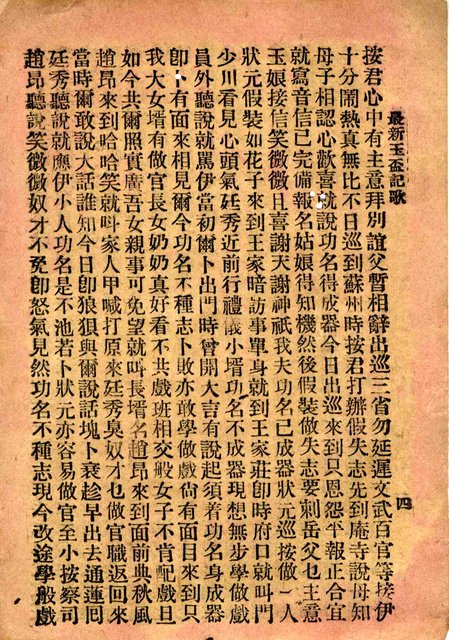 最新玉盃記歌
四
按君心中有主意拜別誼父暫相辭出巡三省勿延遲文武百官等接伊
十分鬧熱真無比不日巡到蘇州時按君打辦假失志先到庵寺說母知
母子相認心歡喜就說功名得成器今日出巡來到只恩怨平報正合宜
就寫音信已完備報名姑娘得知機然後假裝做失志要刺岳父乜主意
玉娘接信笑微微且喜謝天謝神祇我夫功名已成器狀元巡按做一人
狀元假裝如花子來到王家暗訪事單身就到王家莊卽時府口就叫門
少川看見心頭氣廷秀近前行禮儀小壻功名不成器現想無步學做戲
員外聽說就罵伊當初爾卜出門時曾開大吉有說起須着功名身成器
卽卜有面來相見爾今功名不種志卜敗亦敢學做戲尙有面目來到只
我大女壻有做官長女奶奶真好看不共戲班相交般女子不肯配戲旦
如今共爾照實廣吾女親事可免望就叫長壻名趙昂來到面前典秋風
趙昂來到哈哈笑就叫家人甲喊打原來廷秀臭奴才乜做官職返回來
當時爾敢說大話誰知今日卽狼狽與爾說話塊卜衰趁早出去通運囘
廷秀聽說就應伊小人功名是不池若卜狀元亦容易做官至小按察司
趙昂聽說笑微微奴才不免卽怒氣見然功名不種志現今改途學般戲